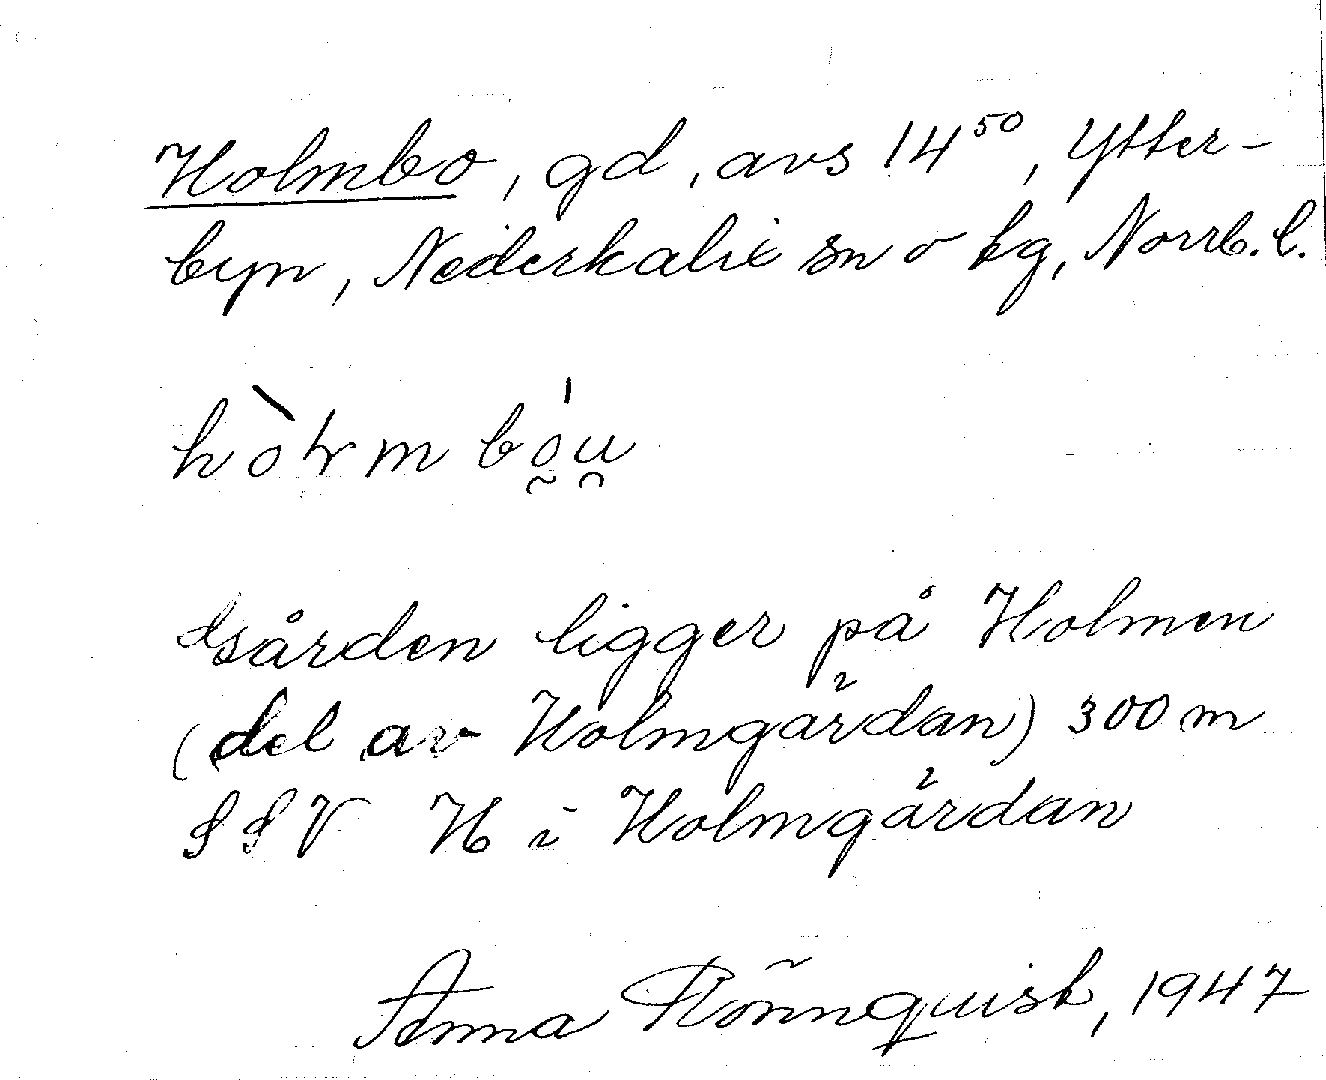 Holmbo, gd, avs 14⁵⁰, Ytter-
byn, Nederkalix sn o kg, Norrb. l.
Gården ligger på Holmen
(del av Holmgärdan) 300 m
SSV H i Holmgärdan
Anna Rönnquist, 1947